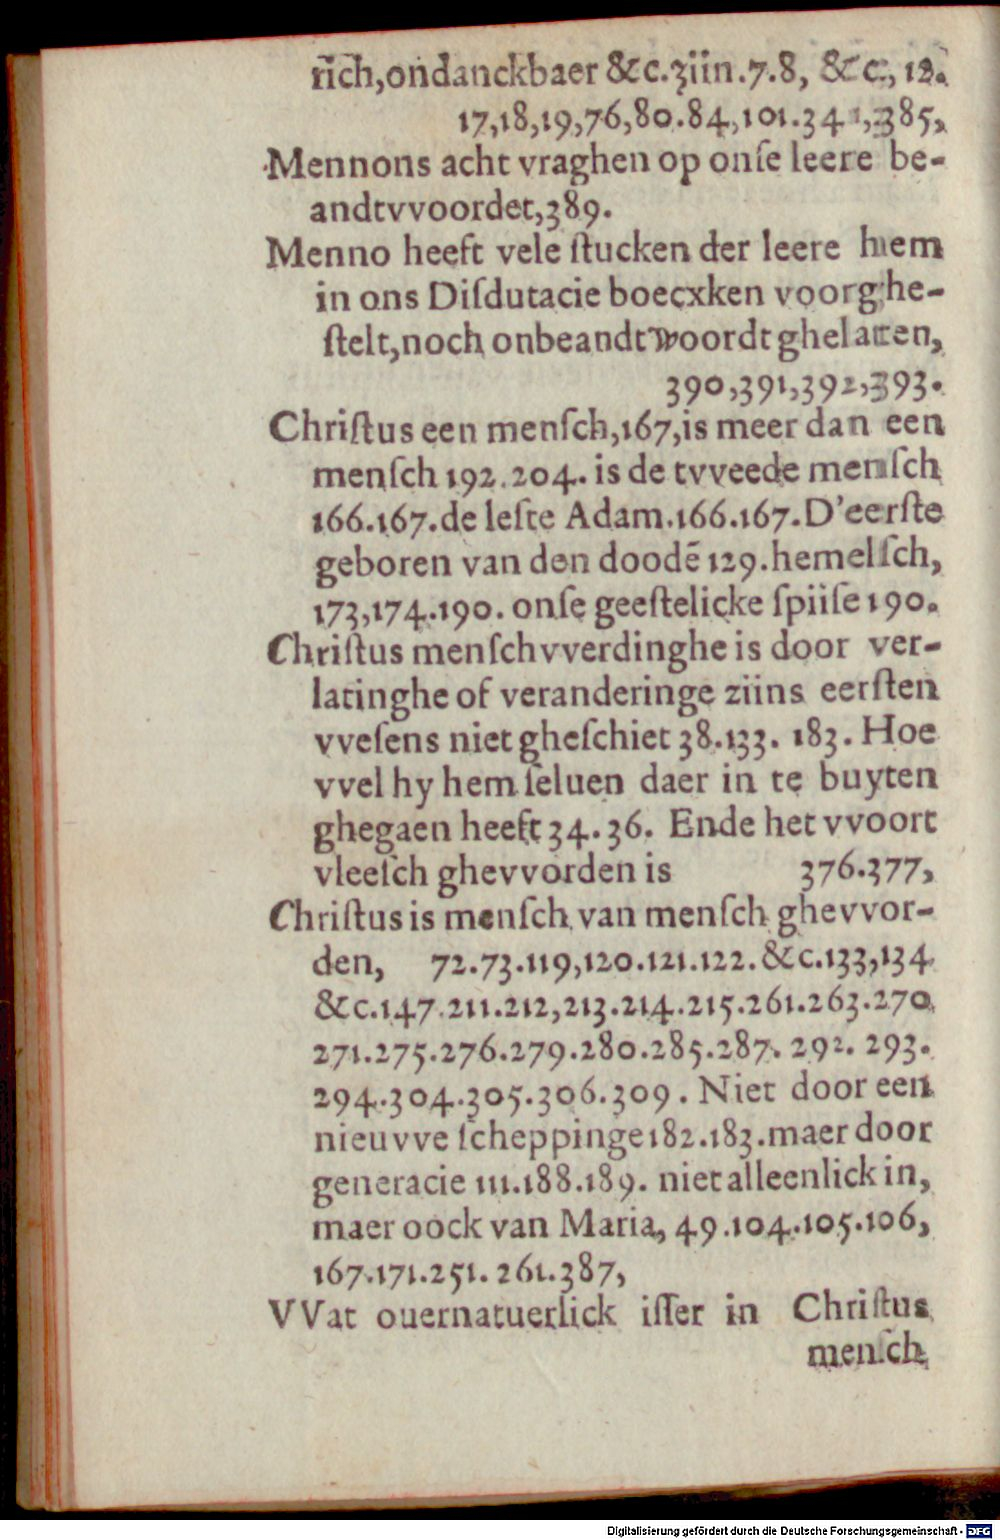 rich,ondanckbaer &c.ziin.7.8, &c., 12.
17,18,19,76,80.84,101.341,385,
Mennons acht vraghen op onſe leere be-
andtvvoordet,389.
Menno heeft vele ſtucken der leere hiem
in ons Diſdutacie boecxken voorghe-
ſtelt,noch onbeandtwoordt ghelatten,
390,391,392,393.
Chriſtus een menſch,167,is meer dan een
menſch 192.204. is de tvveede menſch
166.167.de leſte Adam.166.167.D'eerſte
geboren van den doodē 129.hemelſch,
173,174.190. onſe geeſtelicke ſpiiſe 190.
Chriſtus menſchvverdinghe is door ver-
latinghe of veranderinge ziins eerſten
vveſens niet gheſchiet 38.133. 183. Hoe
vvel hy hem ſeluen daer in te buyten
ghegaen heeft 34.36. Ende het vvoort
vleeſch ghevvorden is 376.377,
Chriſtus is menſch van menſch ghevvor-
den, 72.73.119,120.121.122.&c.133,134
&c.147.211.212,213.214.215.261.263.270,
271.275.276.279.280.285.287. 292. 293.
294.304.305.306.309. Niet door een
nieuvve ſcheppinge182.183.maer door
generacie 111.188.189. niet alleenlick in,
maer oock van Maria, 49.104.105.106,
167.171.251. 261.387,
VVat ouernatuerlick iſſer in Chriſtus
menſch
Digitalisierung gefördert durch die Deutsche Forschungsgemeinschaft - DFG